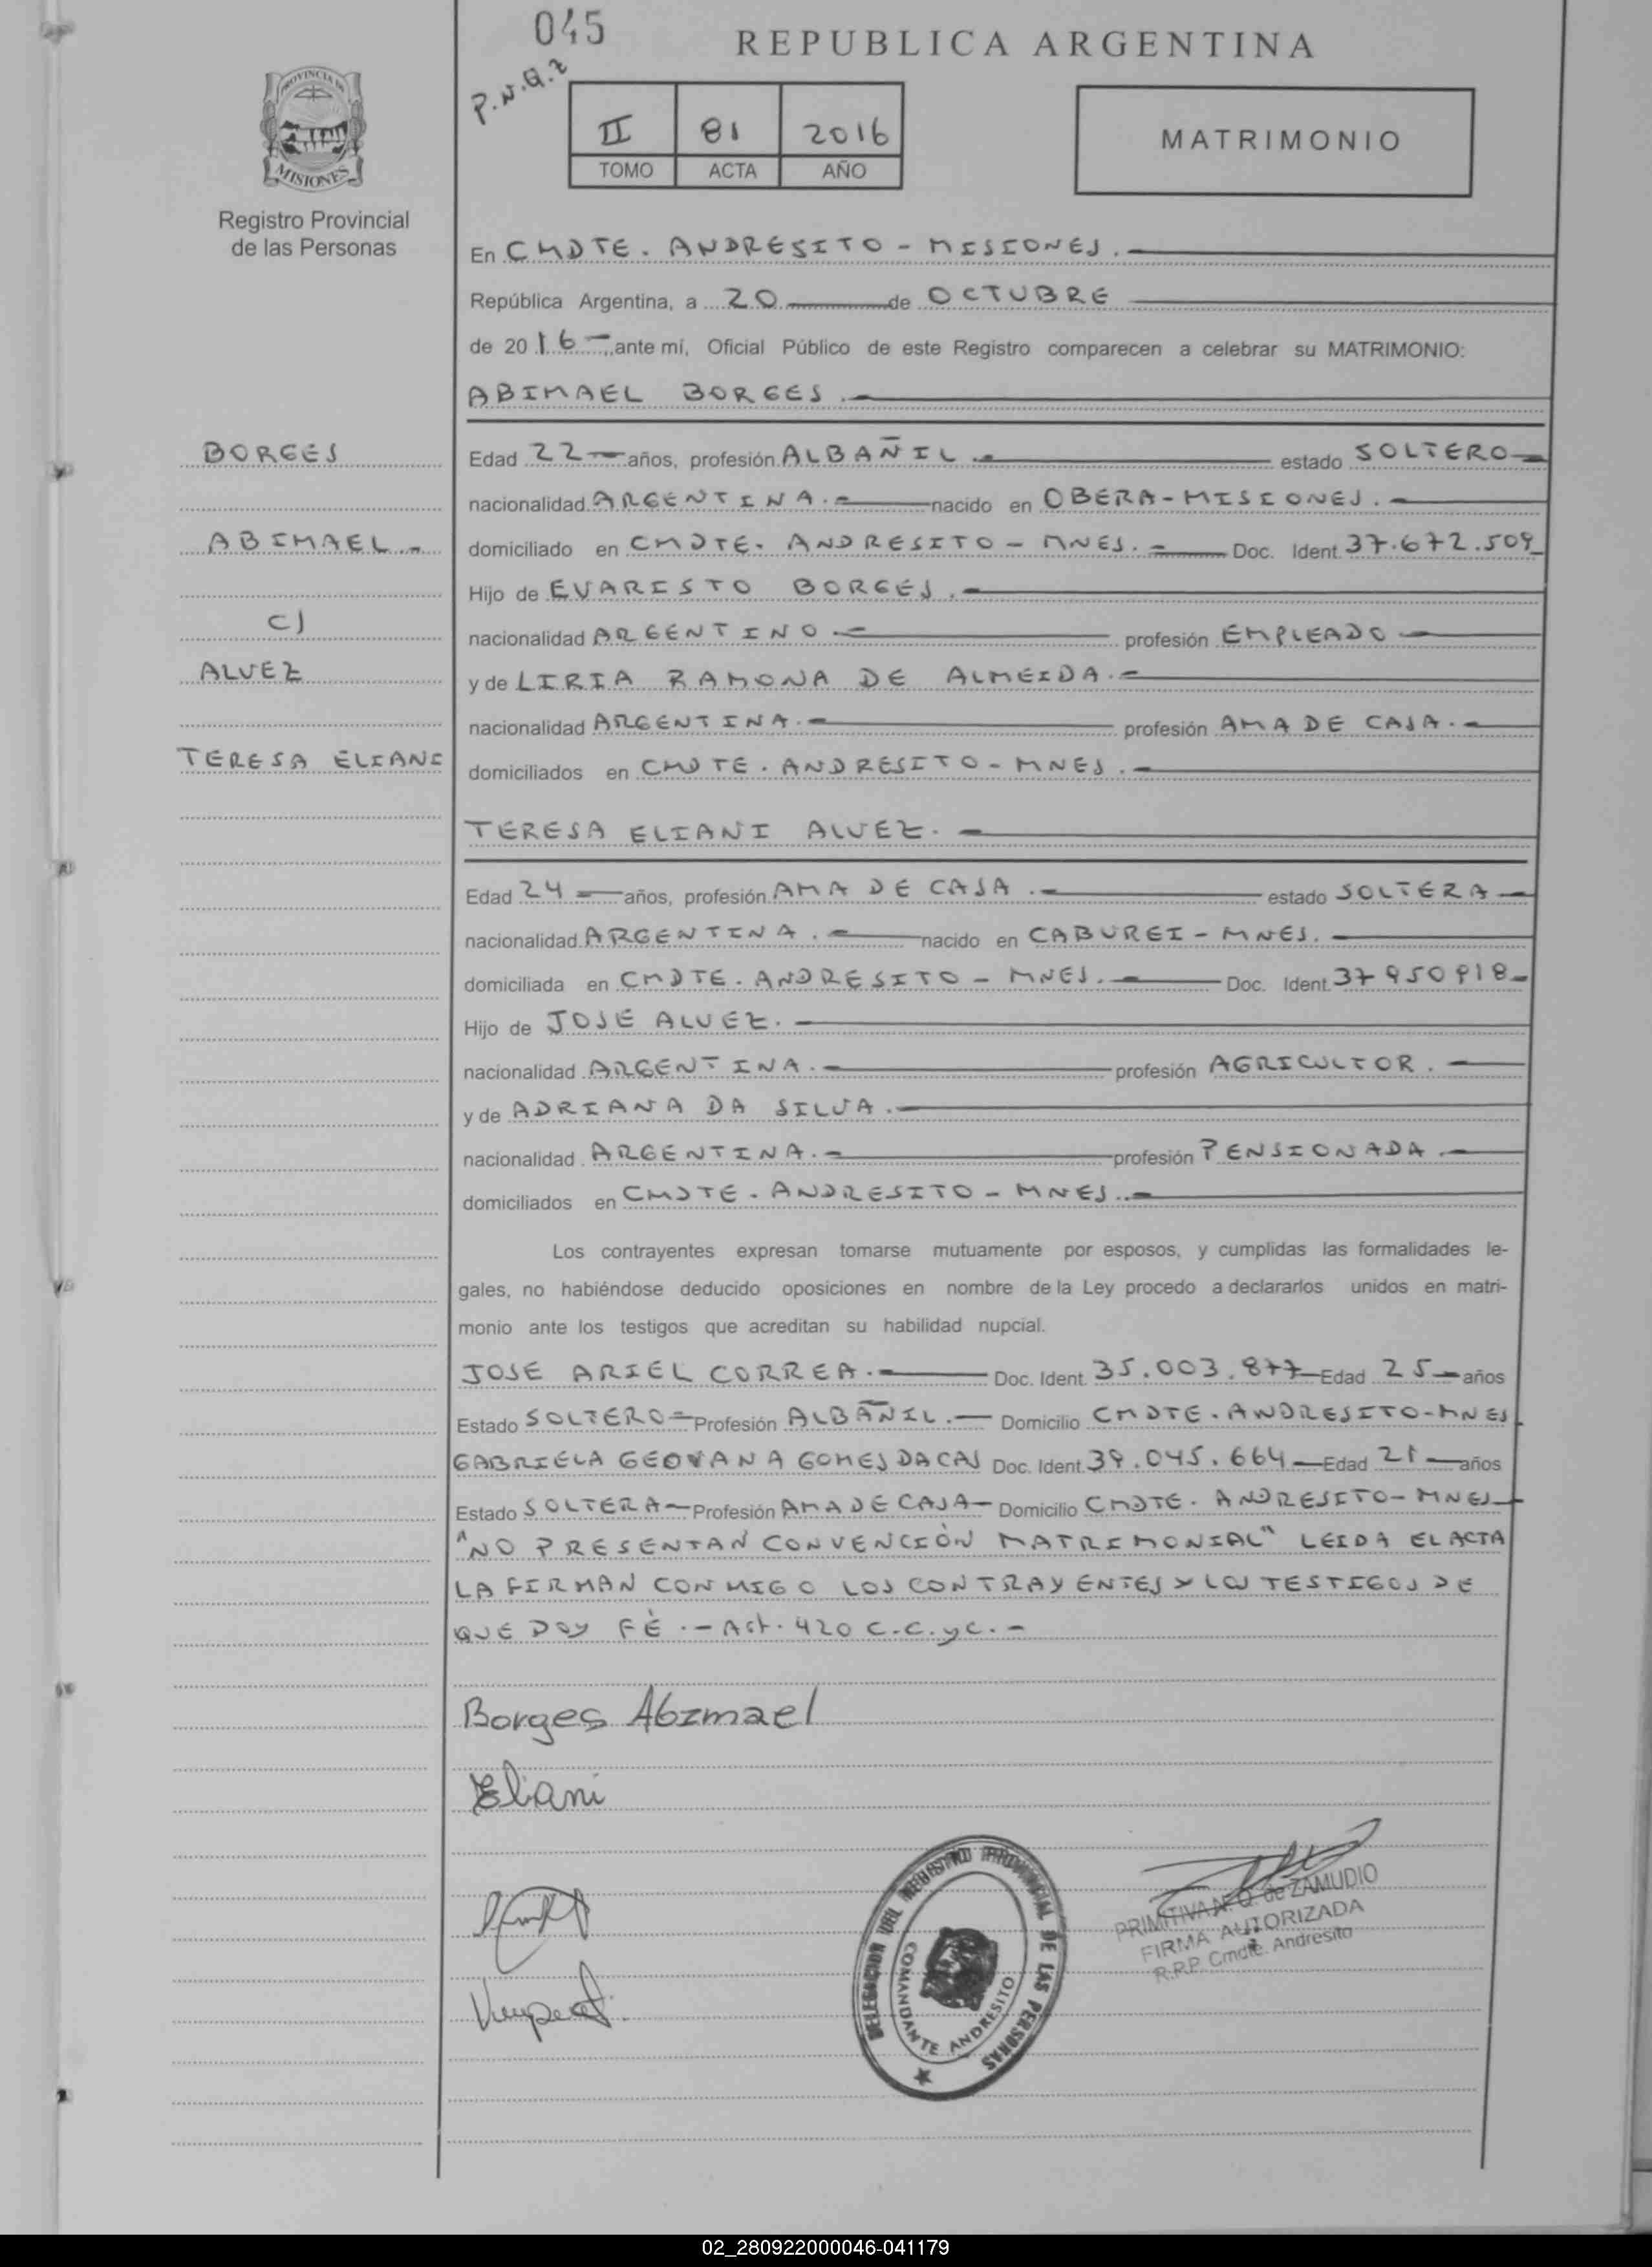 045
REPUBLICA ARGENTINA
P.N.Q.Z
II 81 2016
TOMO ACTA AÑO
MATRIMONIO
PROVINCIA DE
MISIONES
Registro Provincial
de las Personas
En CMDTE. ANDRESITO - MISIONES.
República Argentina, a 20 de OCTUBRE
de 2016 ante mí, Oficial Público de este Registro comparecen a celebrar su MATRIMONIO:
ABIMAEL BORGES.
BORGES
ABIMAEL.-
C/
ALVEZ
TERESA ELIANI
Edad 22 años, profesión ALBAÑIL. estado SOLTERO
nacionalidad ARGENTINA. nacido en OBERA-MISIONES.
domiciliado en CMDTE. ANDRESITO - MNES. Doc. Ident. 37.672.509
Hijo de EVARISTO BORGES.
nacionalidad ARGENTINO profesión EMPLEADO
y de LIRIA RAMONA DE ALMEIDA.
nacionalidad ARGENTINA. profesión AMA DE CASA.
domiciliados en CMDTE. ANDRESITO-MNES.
TERESA ELIANI ALVEZ.
Edad 24 años, profesión AMA DE CASA. estado SOLTERA
nacionalidad ARGENTINA. nacido en CABUREI - MNES.
domiciliada en CMDTE. ANDRESITO - MNES. Doc. Ident.
Hijo de JOSE ALVEZ.
nacionalidad ARGENTINA. profesión AGRICULTOR.
y de ADRIANA DA SILVA.
nacionalidad ARGENTINA. profesión PENSIONADA.
domiciliados en CMDTE. ANDRESITO - MNES.
Los contrayentes expresan tomarse mutuamente por esposos, y cumplidas las formalidades le-
gales, no habiéndose deducido oposiciones en nombre de la Ley procedo a declararlos unidos en matri-
monio ante los testigos que acreditan su habilidad nupcial.
JOSE ARIEL CORREA. Doc. Ident. 35.003.877 Edad 25 años
Estado SOLTERO Profesión ALBAÑIL. Domicilio CMDTE. ANDRESITO-MNES
GABRIELA GEOVANA GOMES DACAS Doc. Ident. 39.045.664 Edad 21 años
Estado SOLTERA Profesión AMA DE CASA Domicilio CMDTE. ANDRESITO-MNES
"NO PRESENTAN CONVENCIÓN MATRIMONIAL" LEIDA EL ACTA
LA FIRMAN CONMIGO LOS CONTRAYENTES Y LOS TESTIGOS DE
QUE DOY FÉ.- Art. 420 C.C.yC.-
Borges Abimael
Eliani
DELEGACION DEL REGISTRO PROVINCIAL DE LAS PERSONAS
COMANDANTE ANDRESITO
PRIMITIVA N. Q. de ZAMUDIO
FIRMA AUTORIZADA
R.P.P. Cmdte. Andresito
02_280922000046-041179